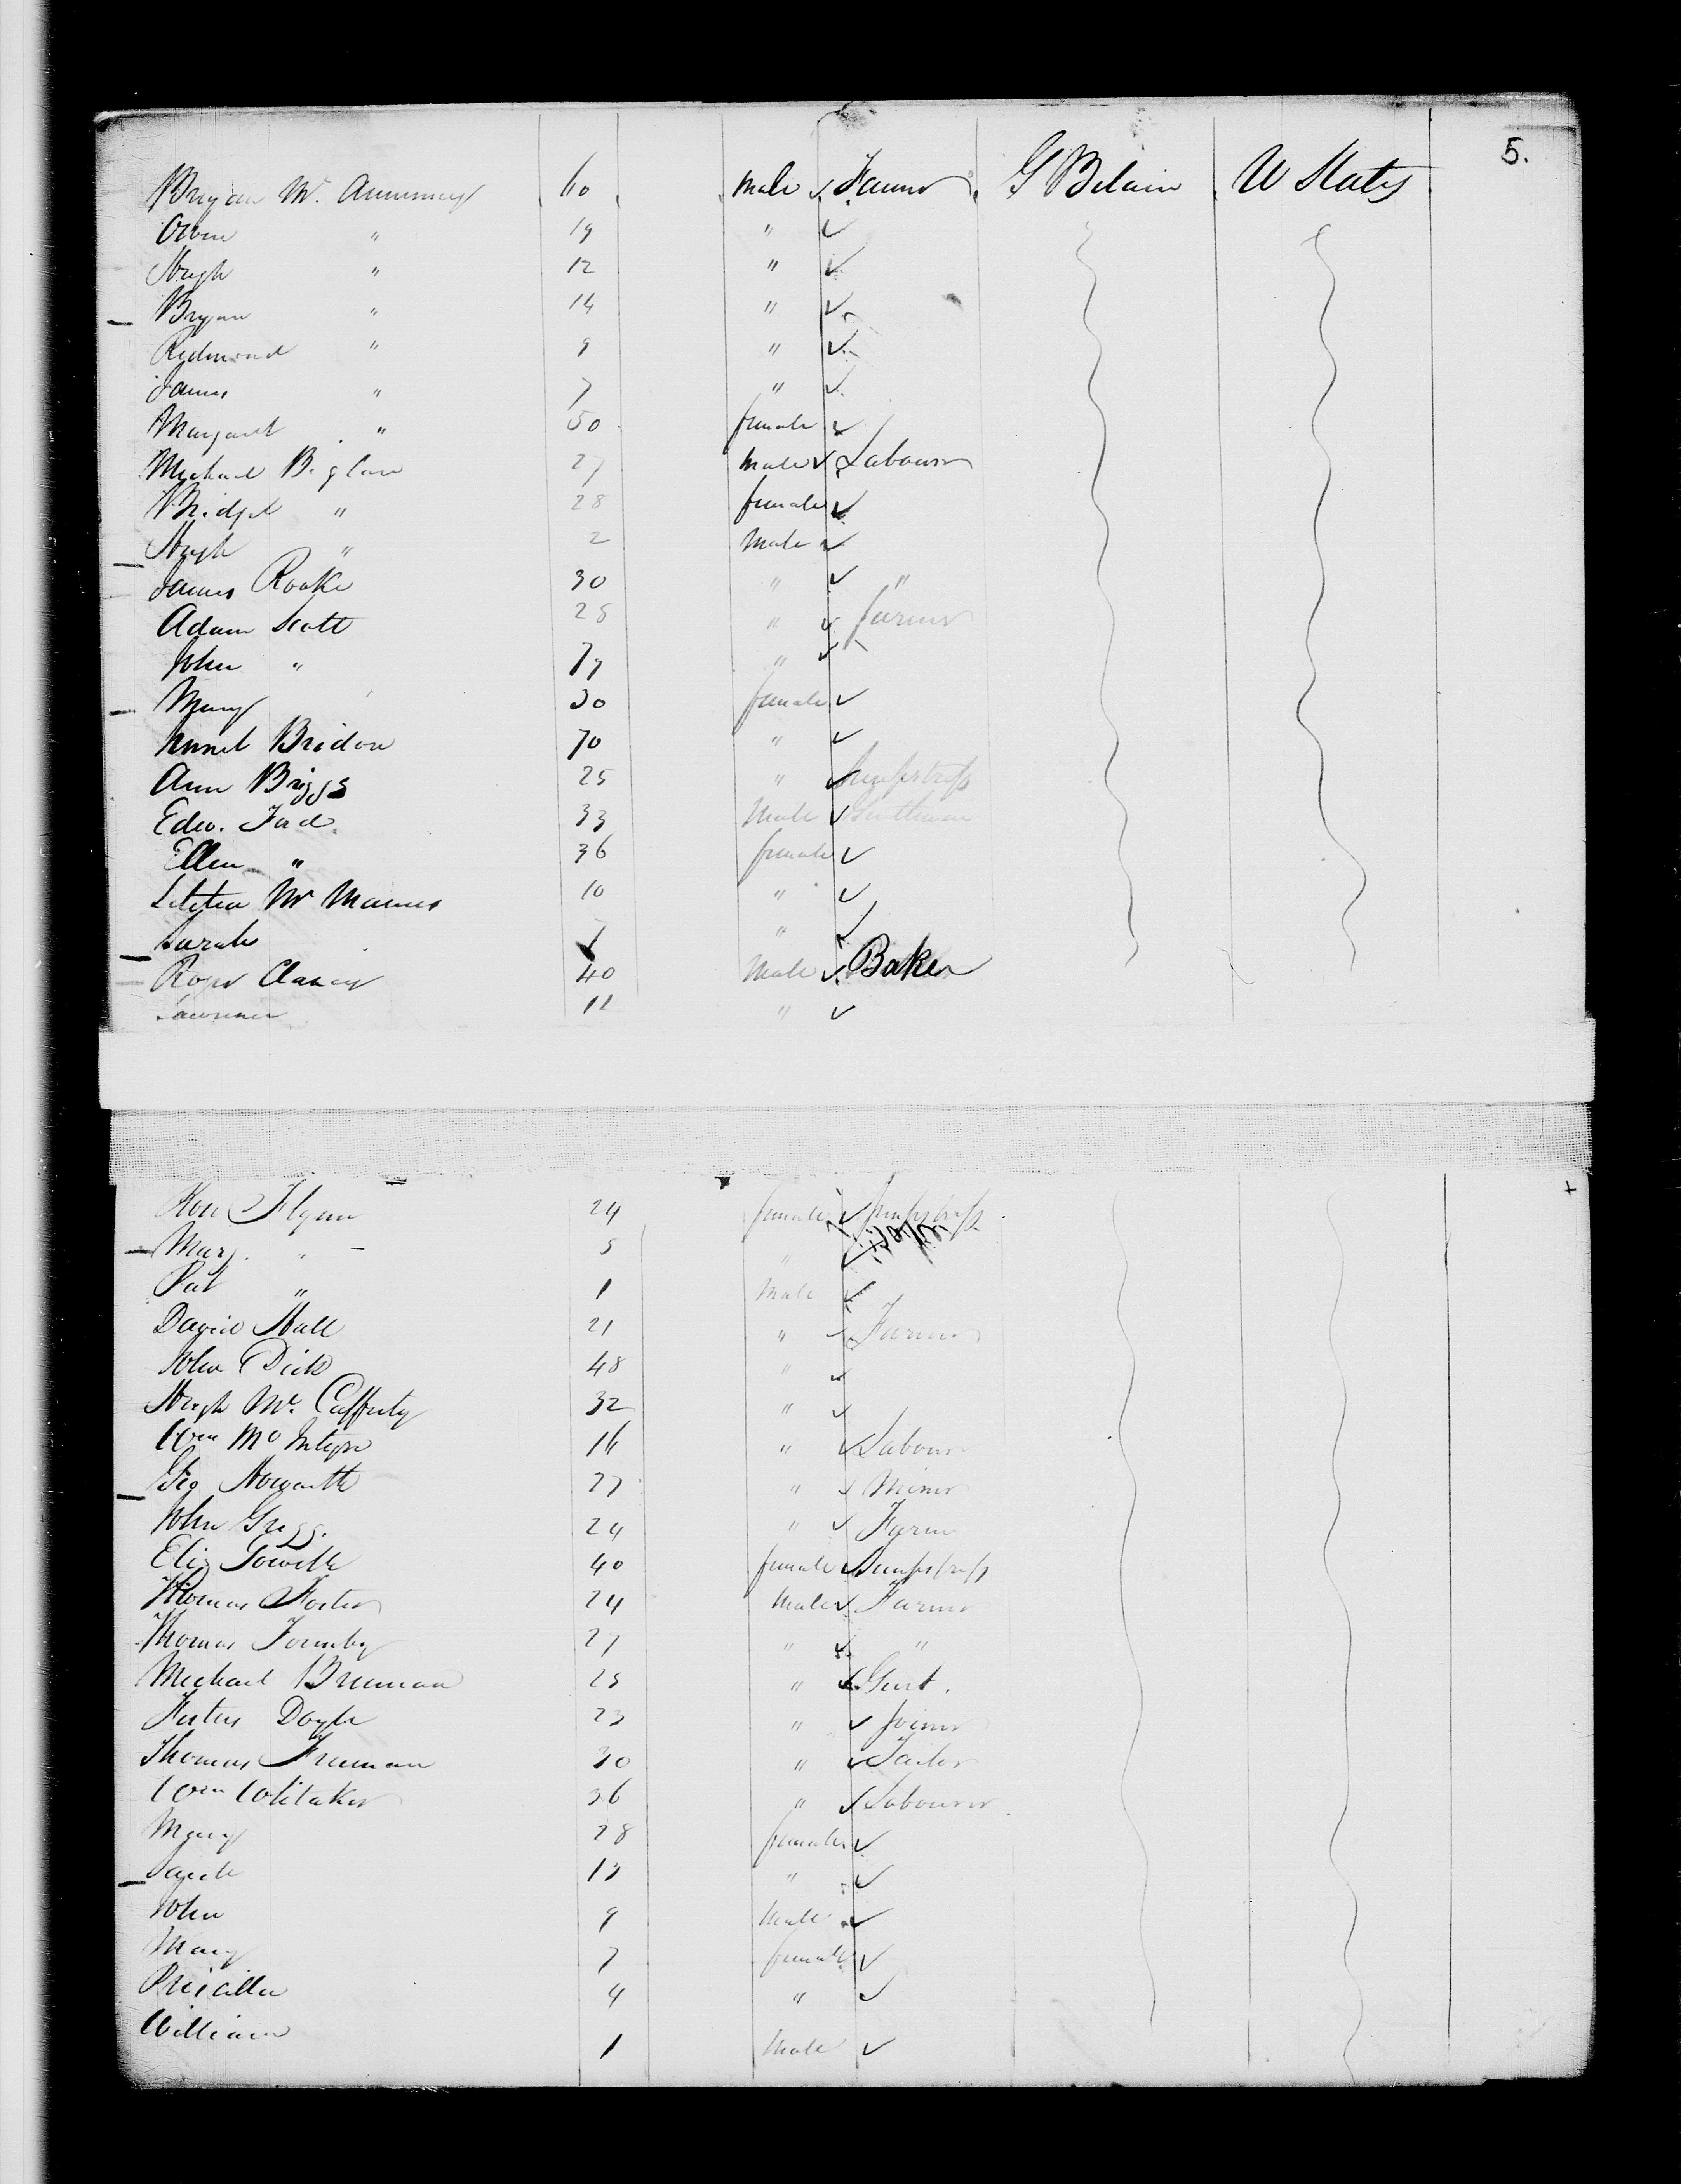 5.
Bryan Mc 60 male Farmer G Britain U States
Owen " 19 "
Hugh " 12 "
Bryan " 14 "
Redmond " 9 "
James " 7 "
Margaret " 50 female
Michael Beglan 27 male Labourer
Bridget " 28 female
Hugh " 2 Male
James Roake 30 " "
Adam Scott 28 " farmer
John " "
Mary 30 female
Bridon 70 "
Ann Briggs 25 " Sempstress
Edw. 33 Male Gentleman
Ellen " 36 female
Letitia Mc Manus 10 "
Sarah "
Roger Clancy 40 Male Baker
Lawrence "
Flynn 24 female Sempstress
Mary " 5 "
Pat " 1 Male
David Hall 21 " Farmer
John Dick 48 "
Hugh Mc. Cafferty 32 "
Wm Mc Intyre 16 " Labour
Geo Howarth 27 " Miner
John Gregg. 24 " Farm
Eliz 40 female Sempstress
Thomas Foster 24 Male Farmer
Thomas Formby 27 " "
Michael Brennan 25 " Gent.
Doyle 23 " Joiner
Thomas Freeman 30 " Tailor
Wm Whitaker 36 " Labourer
Mary 28 female
Sarah 13 "
John 9 Male
Mary 7 female
Priscilla 4 "
William 1 Male